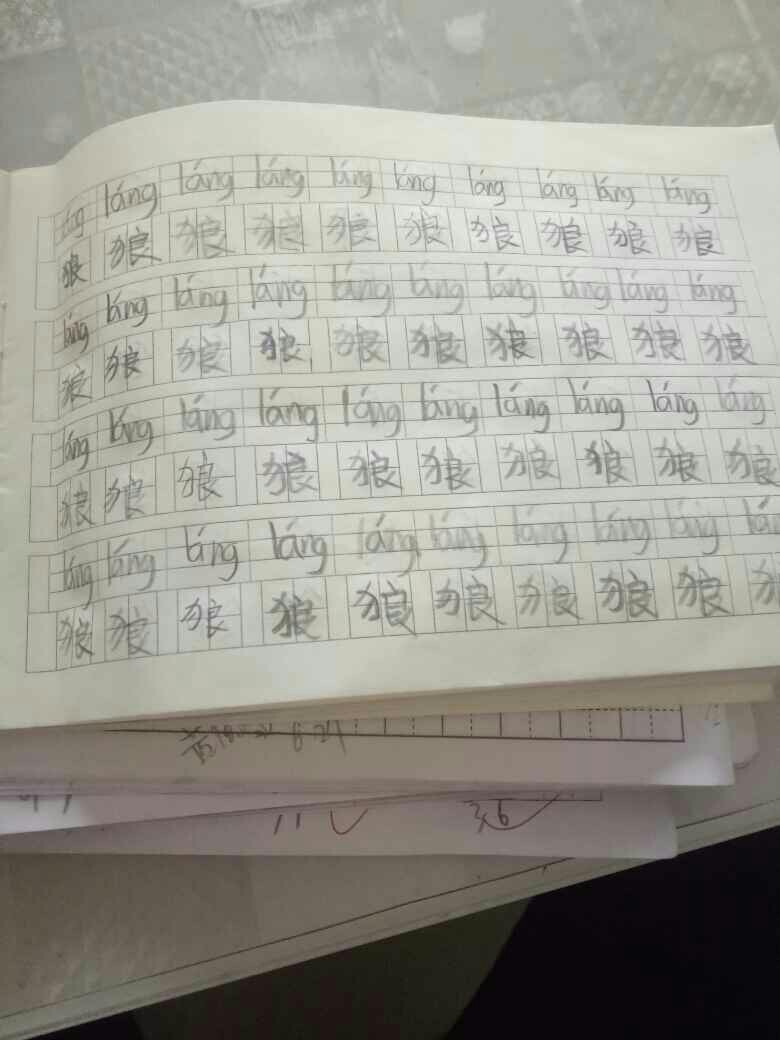 láng láng láng láng láng láng láng láng láng láng
狼 狼 狼 狼 狼 狼 狼 狼 狼 狼
láng láng láng láng láng láng láng láng láng láng
狼 狼 狼 狼 狼 狼 狼 狼 狼 狼
láng láng láng láng láng láng láng láng láng láng
狼 狼 狼 狼 狼 狼 狼 狼 狼 狼
láng láng láng láng láng láng láng láng láng lá
狼 狼 狼 狼 狼 狼 狼 狼 狼
6.24
36